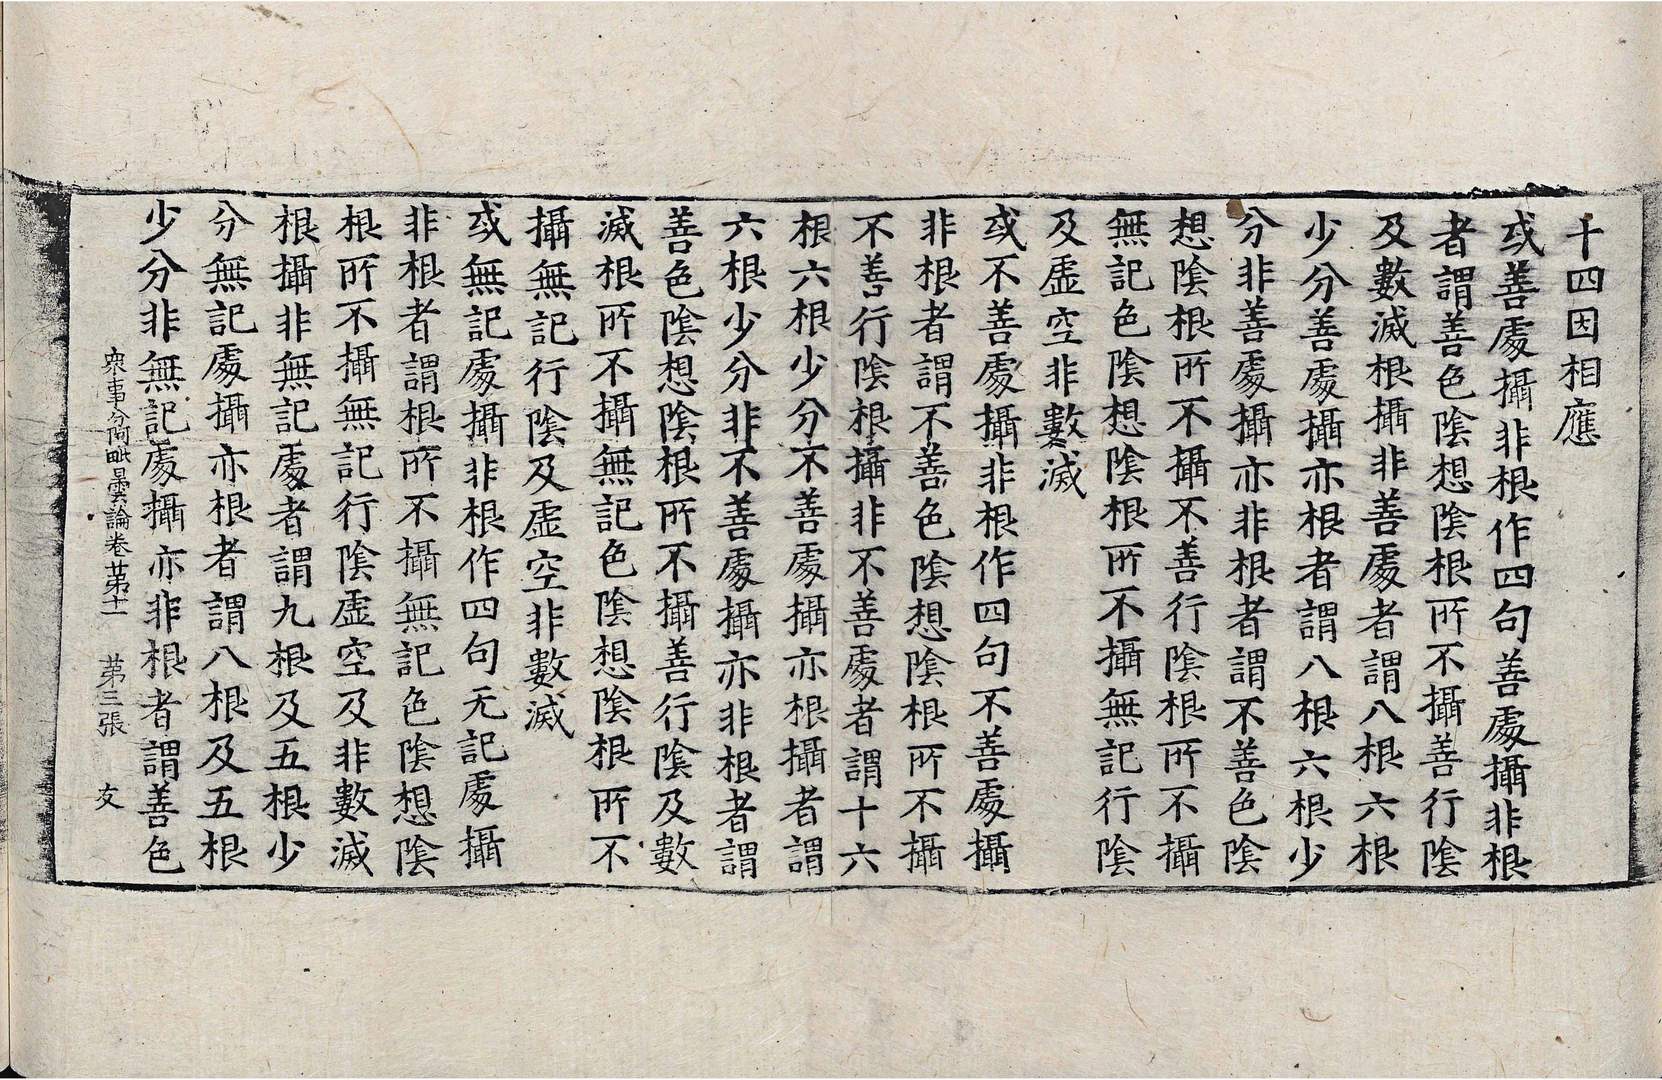 十四因相應
或善處攝非根作四句善處攝非根
者謂善色陰想陰根所不攝善行陰
及數滅根攝非善處者謂八根六根
少分善處攝亦根者謂八根六根少
分非善處攝亦非根者謂不善色陰
想陰根所不攝不善行陰根所不攝
無記色陰想陰根所不攝無記行陰
及虛空非數滅
或不善處攝非根作四句不善處攝
非根者謂不善色陰想陰根所不攝
不善行陰根攝非不善處者謂十六
根六根少分不善處攝亦根攝者謂
六根少分非不善處攝亦非根者謂
善色陰想陰根所不攝善行陰及數
滅根所不攝無記色陰想陰根所不
攝無記行陰及虛空非數滅
或無記處攝非根作四句无記處攝
非根者謂根所不攝無記色陰想陰
根所不攝無記行陰虛空及非數滅
根攝非無記處者謂九根及五根少
分無記處攝亦根者謂八根及五根
少分非無記處攝亦非根者謂善色
衆事分阿毗曇論卷苐十一 苐三張 友